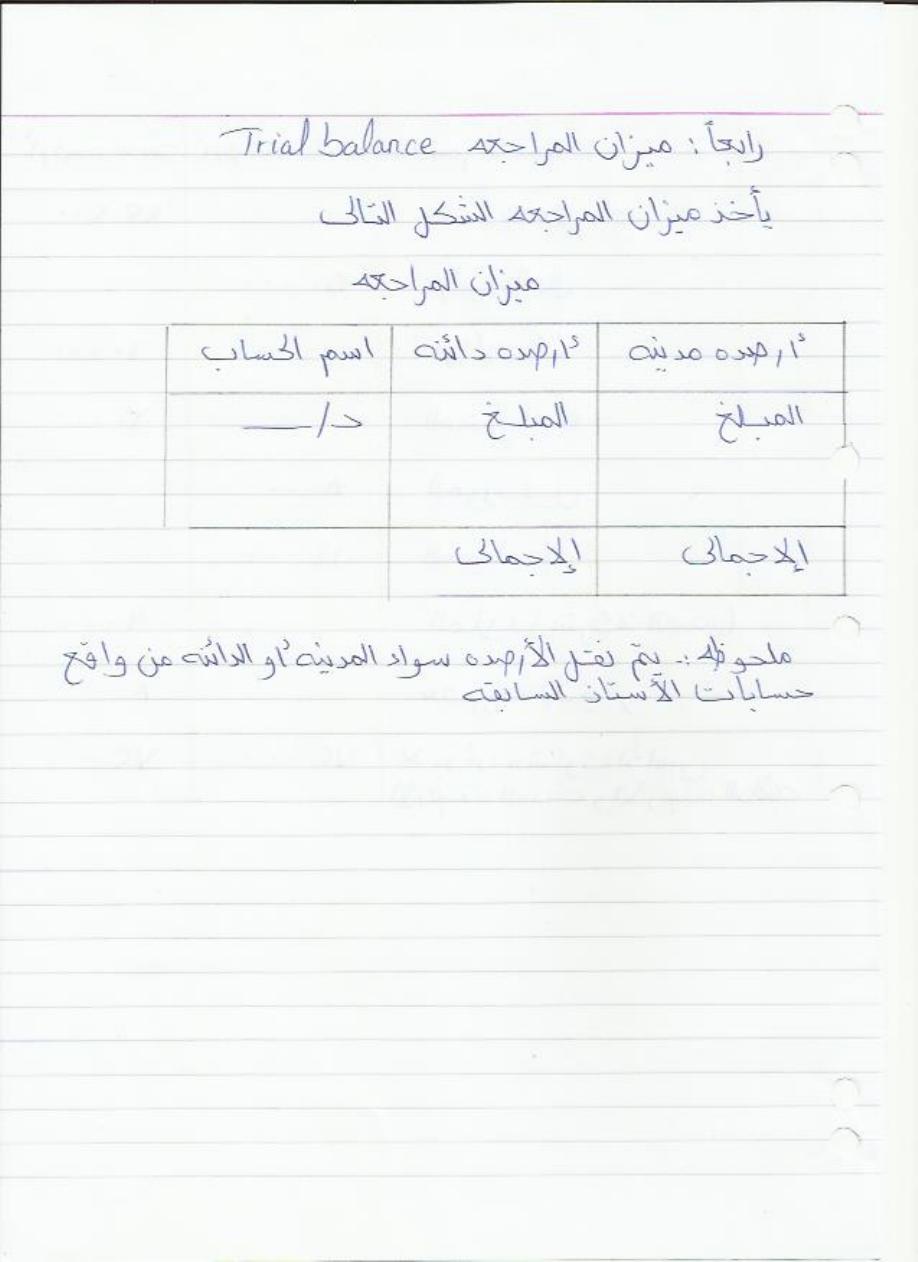 رابعاً : ميزان المراجعه Trial balance
يأخذ ميزان المراجعه الشكل التالى
ميزان المراجعه
أرصده مدينه أرصده دائنه اسم الحساب
المبلغ المبلغ د/ــــ
إلاجمالى إلاجمالى
ملحوظه :. يتم نقل الأرصده سواء المدينه أو الدائنه من واقع
حسابات الأستاذ السابقه